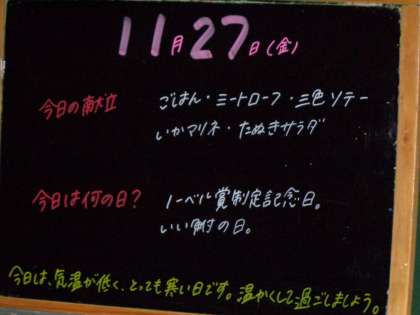 11月27日(金)
今日の献立 ごはん・ミートローフ・三色ソテー
いかマリネ・たぬきサラダ
今日は何の日? ノーベル賞制定記念日。
いい鮒の日。
今日は、気温が低く、とっても寒い日です。温かくして過ごしましょう。